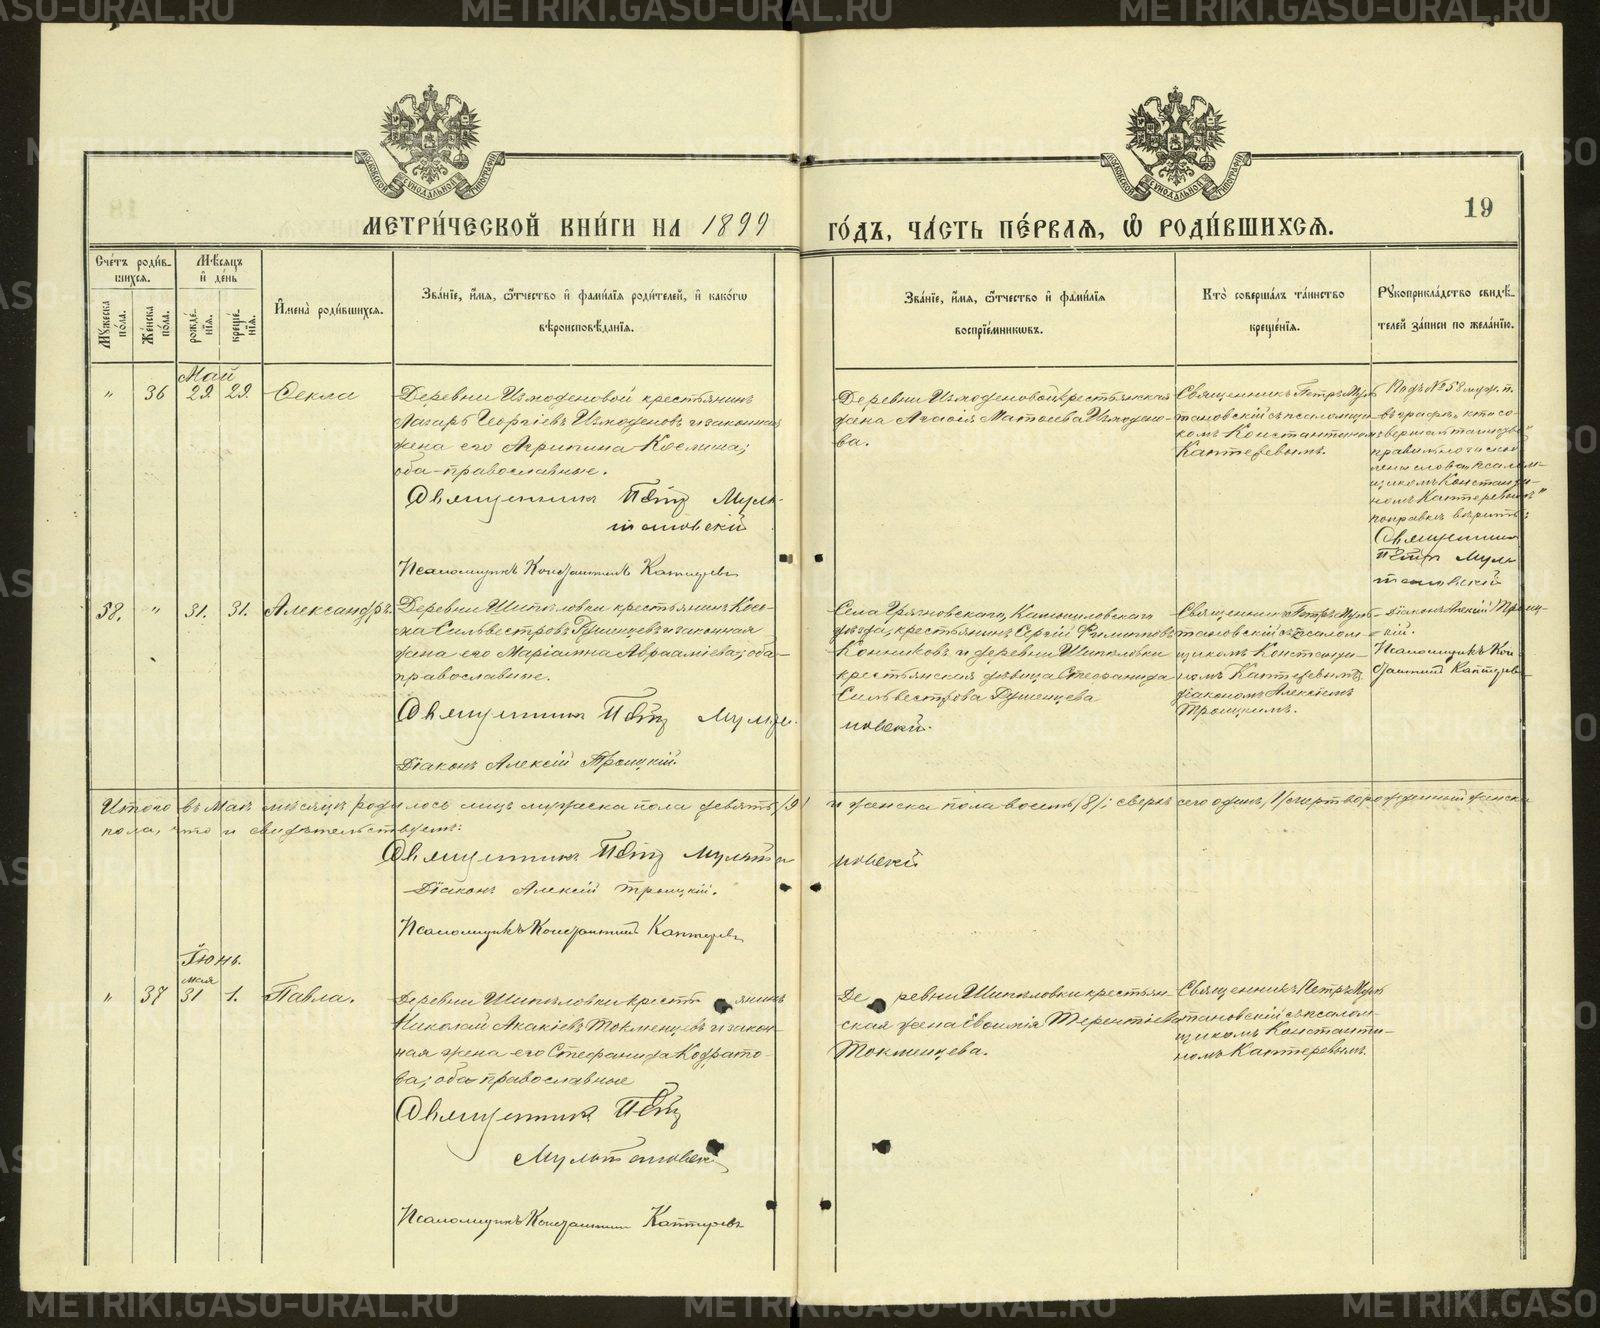 МЕТРИ́ЧЕСКОЙ КНИ́ГИ НА 1899
ГО́ДЪ, ЧА́СТЬ ПЕ́РВАЯ, Ѡ РОДИ́ВШИХСЯ.
19
Сче́тъ роди́в-
шихся.
Мѣ́сяцъ
и҆ де́нь
Мꙋ́жеска по́ла.
Же́нска по́ла.
рожде́-
нїѧ.
креще́-
нїѧ.
И҆мена̀ роди́вшихсѧ.
Зва́нїе, и҆́мѧ, ѻ҆́тчество и҆ фами́лїѧ роди́телей, и҆ како́гѡ
вѣроисповѣ́данїѧ.
Зва́нїе, и҆́мѧ, ѻ҆́тчество и҆ фами́лїѧ
воспрїе́мниковъ.
Кто̀ соверша́лъ та́инство
креще́нїѧ.
Рꙋкоприкла́дство свидѣ́-
телей за́писи по жела́нїю.
Май
" 36 29. 29. Ѳекла
Деревни Измоденовой крестьянинъ
Лазарь Георгіевъ Измоденовъ и законная
жена его Агрипина Косьмина;
оба православные.
Священникъ Петръ Муль-
тановскій
Псаломщикъ Константинъ Каптеревъ
Деревни Измоденовой крестьянская
жена Агафія Матѳеева Измодено-
ва.
Священникъ Петръ Муль-
тановскій съ псаломщи-
комъ Константиномъ
Каптеревымъ.
Подъ № 58 муж. п.
въ графѣ „кто со-
вершалъ таинство"
Константи-
номъ Каптеревымъ"
Священникъ
Петръ Муль-
тановскій
58. " 31. 31. Александръ.
Деревни Шипѣловки крестьянинъ Кось-
ма Сильвестровъ и законная
жена его Маріамна Авраамiева; оба
православные.
Священникъ Петръ Мульта-
новскій.
Діаконъ Алексій Троицкій.
Села Грязновскаго, Камышловскаго
уѣзда, крестьянинъ Сергій Филипповъ
Конниковъ и деревни Шипѣловки
крестьянская дѣвица Стефанида
Сильвестрова
Священникъ Петръ Муль-
тановскій съ псалом-
щикомъ Константи-
номъ Каптеревымъ и
діакономъ Алексіемъ
Троицкимъ.
Діаконъ Алексій Троиц-
кій.
Псаломщикъ Кон-
стантинъ Каптеревъ
Итого въ маѣ мѣсяцѣ родилось лицъ мужеска пола девять /9/ и женска пола восемь /8/; сверхъ сего одинъ /1/ мертворожденный женска
пола, что и свидѣтельствуемъ:
Священникъ Петръ Мультановскій
Діаконъ Алексій Троицкій.
Псаломщикъ Константинъ Каптеревъ
Іюнь.
мая
" 37 31 1. Павла.
Деревни Шипѣловки крестьянинъ
Николай Акакіевъ Токменцевъ и закон-
ная жена его Стефанида Кодрато-
ва; оба православные
Священникъ Петръ
Мультановскій
Псаломщикъ Константинъ Каптеревъ
Деревни Шипѣловки крестьян-
ская жена Терентіева
Токменцева.
Священникъ Петръ Муль-
тановскій съ псалом-
щикомъ Константи-
номъ Каптеревымъ.